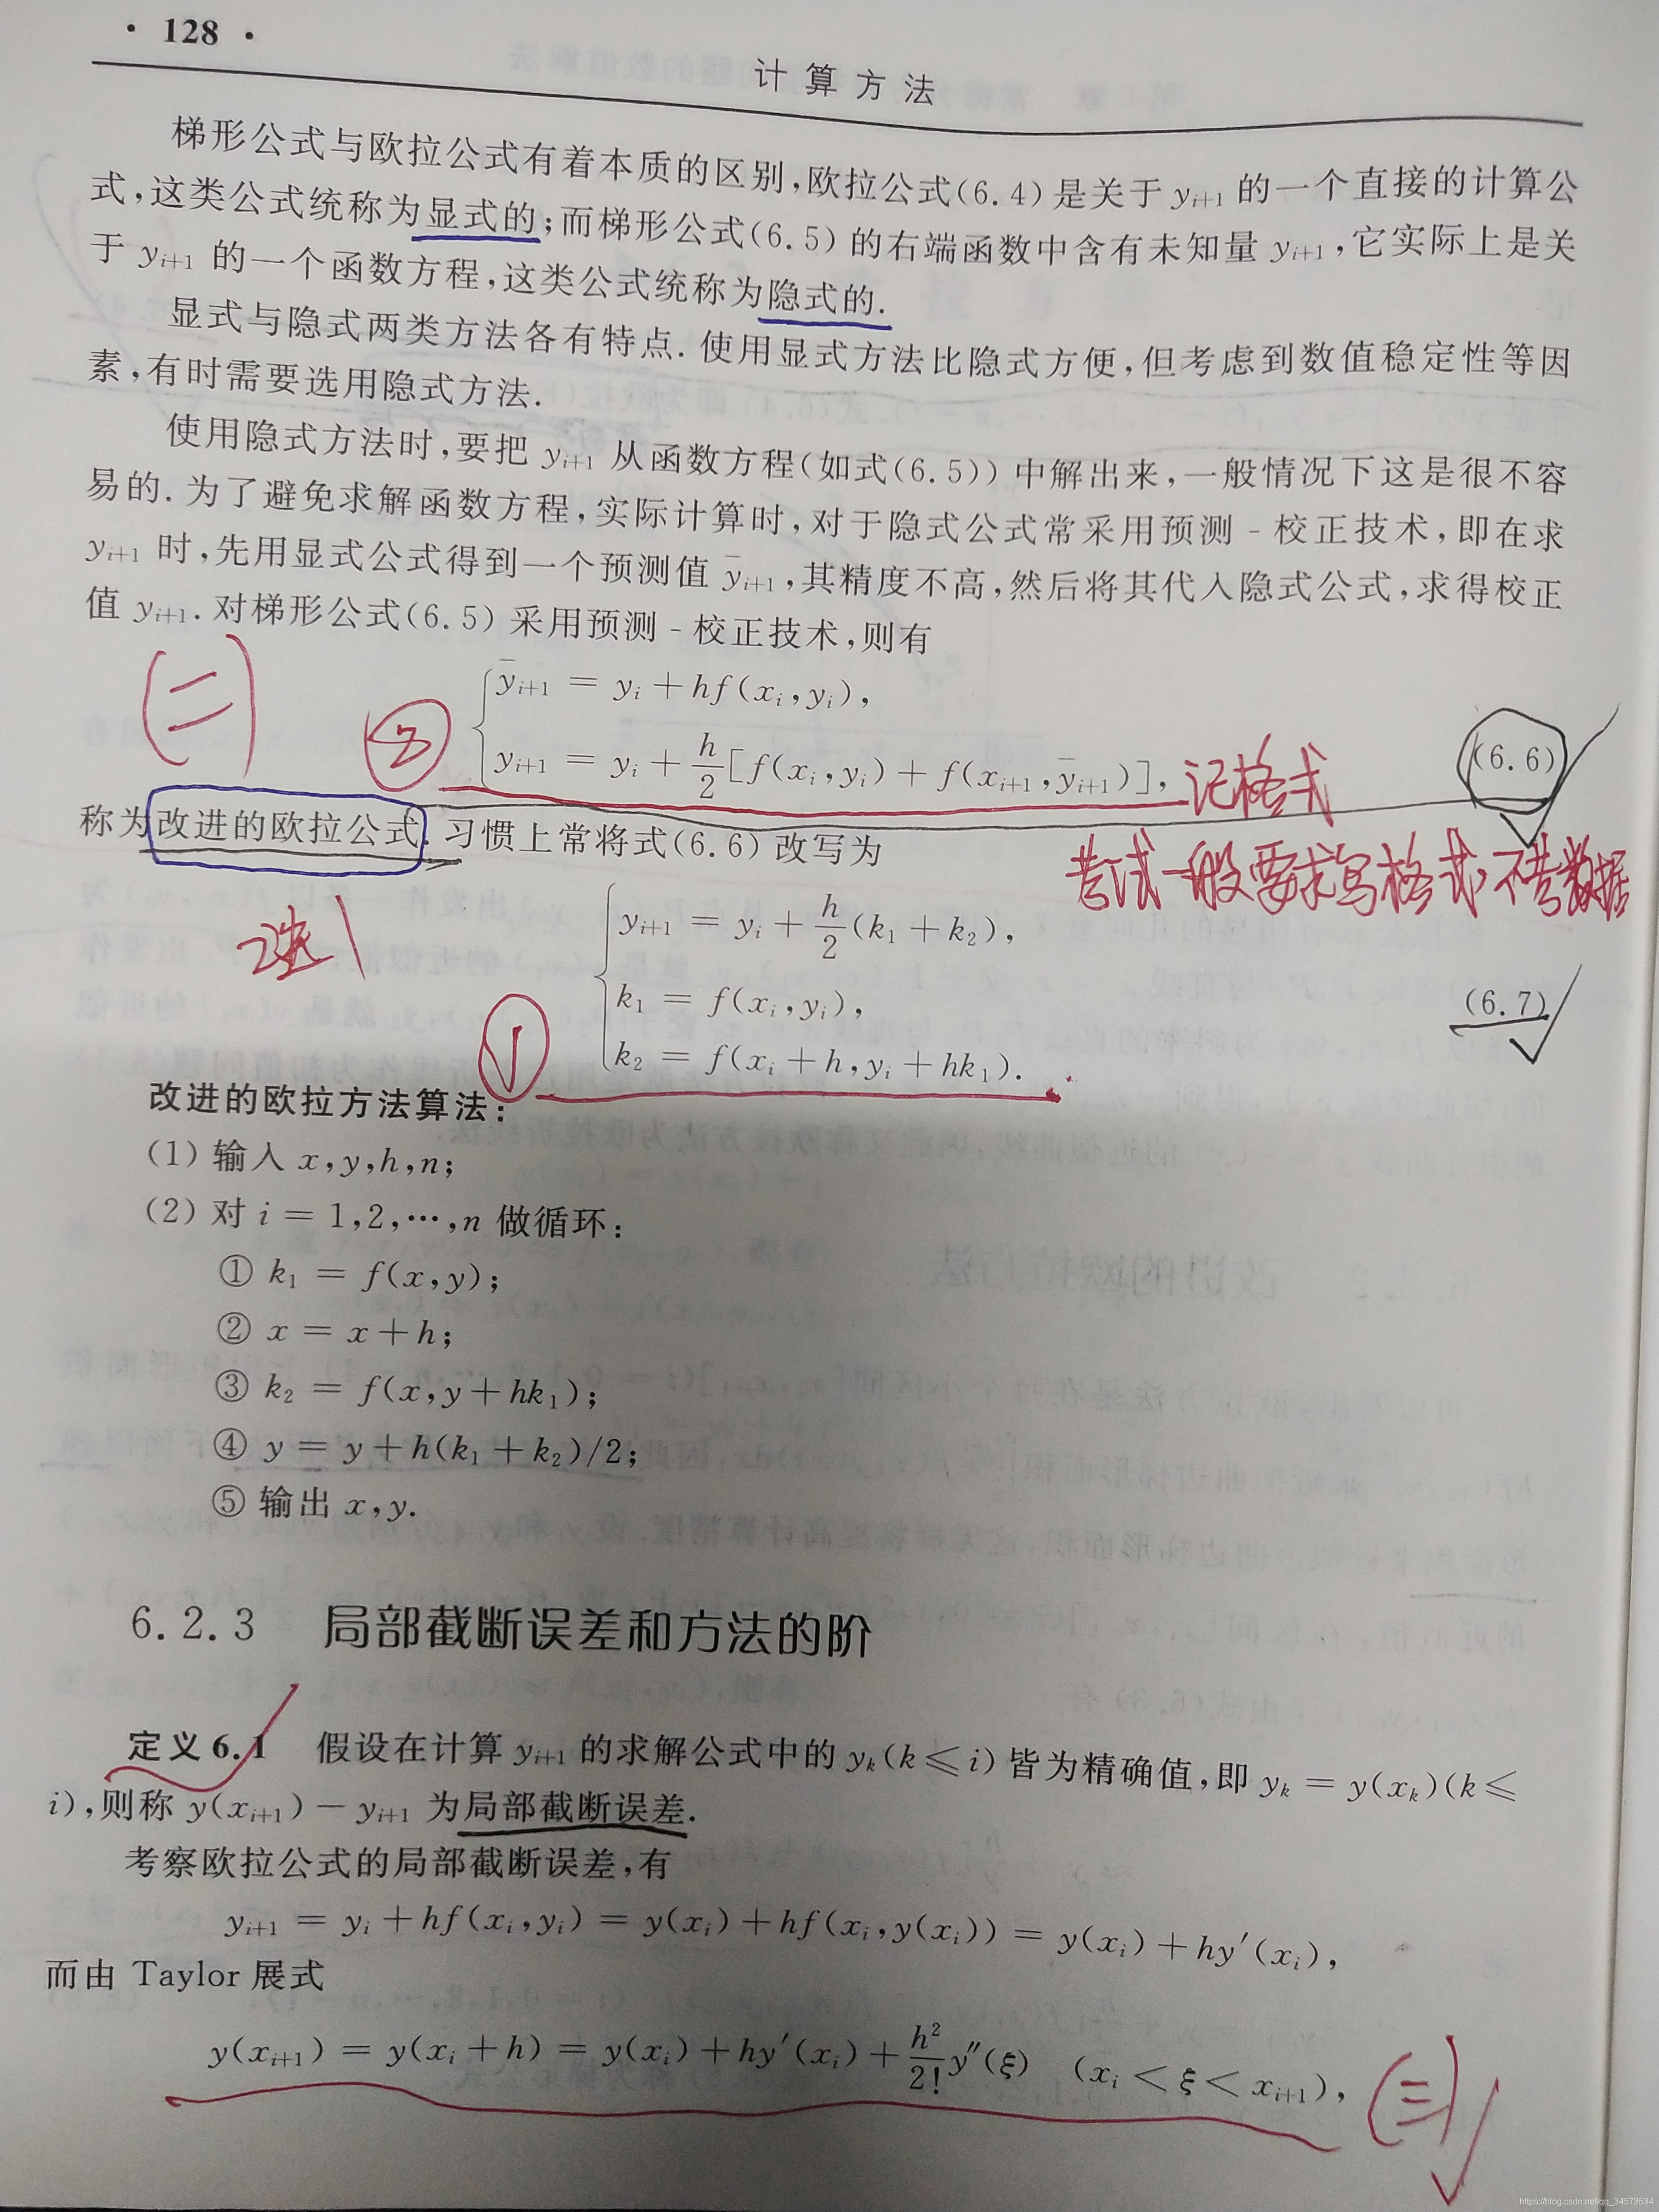 · 128 ·
计算方法
梯形公式与欧拉公式有着本质的区别,欧拉公式(6.4)是关于 yᵢ₊₁ 的一个直接的计算公
式,这类公式统称为显式的;而梯形公式(6.5)的右端函数中含有未知量 yᵢ₊₁,它实际上是关
于 yᵢ₊₁ 的一个函数方程,这类公式统称为隐式的.
显式与隐式两类方法各有特点.使用显式方法比隐式方便,但考虑到数值稳定性等因
素,有时需要选用隐式方法.
使用隐式方法时,要把 yᵢ₊₁ 从函数方程(如式(6.5))中解出来,一般情况下这是很不容
易的.为了避免求解函数方程,实际计算时,对于隐式公式常采用预测-校正技术,即在求
yᵢ₊₁ 时,先用显式公式得到一个预测值 ȳᵢ₊₁,其精度不高,然后将其代入隐式公式,求得校正
值 yᵢ₊₁.对梯形公式(6.5)采用预测-校正技术,则有
(二)
ȳᵢ₊₁ = yᵢ + hf(xᵢ,yᵢ),
② yᵢ₊₁ = yᵢ + h/2[f(xᵢ,yᵢ) + f(xᵢ₊₁,ȳᵢ₊₁)], (6.6)
记格式
称为改进的欧拉公式.习惯上常将式(6.6)改写为
考试一般要求写格式,不考数据
2选1
yᵢ₊₁ = yᵢ + h/2(k₁ + k₂),
k₁ = f(xᵢ,yᵢ), (6.7)
① k₂ = f(xᵢ + h,yᵢ + hk₁).
改进的欧拉方法算法:
(1) 输入 x,y,h,n;
(2) 对 i = 1,2,…,n 做循环:
① k₁ = f(x,y);
② x = x + h;
③ k₂ = f(x,y + hk₁);
④ y = y + h(k₁ + k₂)/2;
⑤ 输出 x,y.
6.2.3 局部截断误差和方法的阶
定义6.1 假设在计算 yᵢ₊₁ 的求解公式中的 yₖ(k ⩽ i)皆为精确值,即 yₖ = y(xₖ)(k ⩽
i),则称 y(xᵢ₊₁) − yᵢ₊₁ 为局部截断误差.
考察欧拉公式的局部截断误差,有
yᵢ₊₁ = yᵢ + hf(xᵢ,yᵢ) = y(xᵢ) + hf(xᵢ,y(xᵢ)) = y(xᵢ) + hy′(xᵢ),
而由 Taylor 展式
y(xᵢ₊₁) = y(xᵢ + h) = y(xᵢ) + hy′(xᵢ) + h²/2! y″(ξ) (xᵢ < ξ < xᵢ₊₁),
(三)
https://blog.csdn.net/qq_34573534